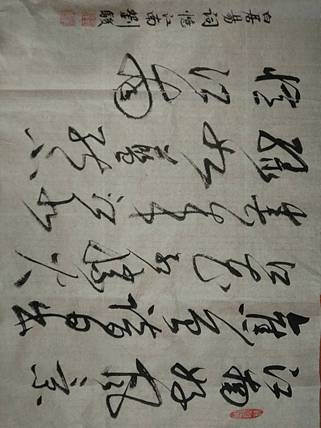 江南好風景
舊曾諳日出
江花紅勝火
春來江水綠
如藍能不
憶江南
白居易詞憶江南 劉駿